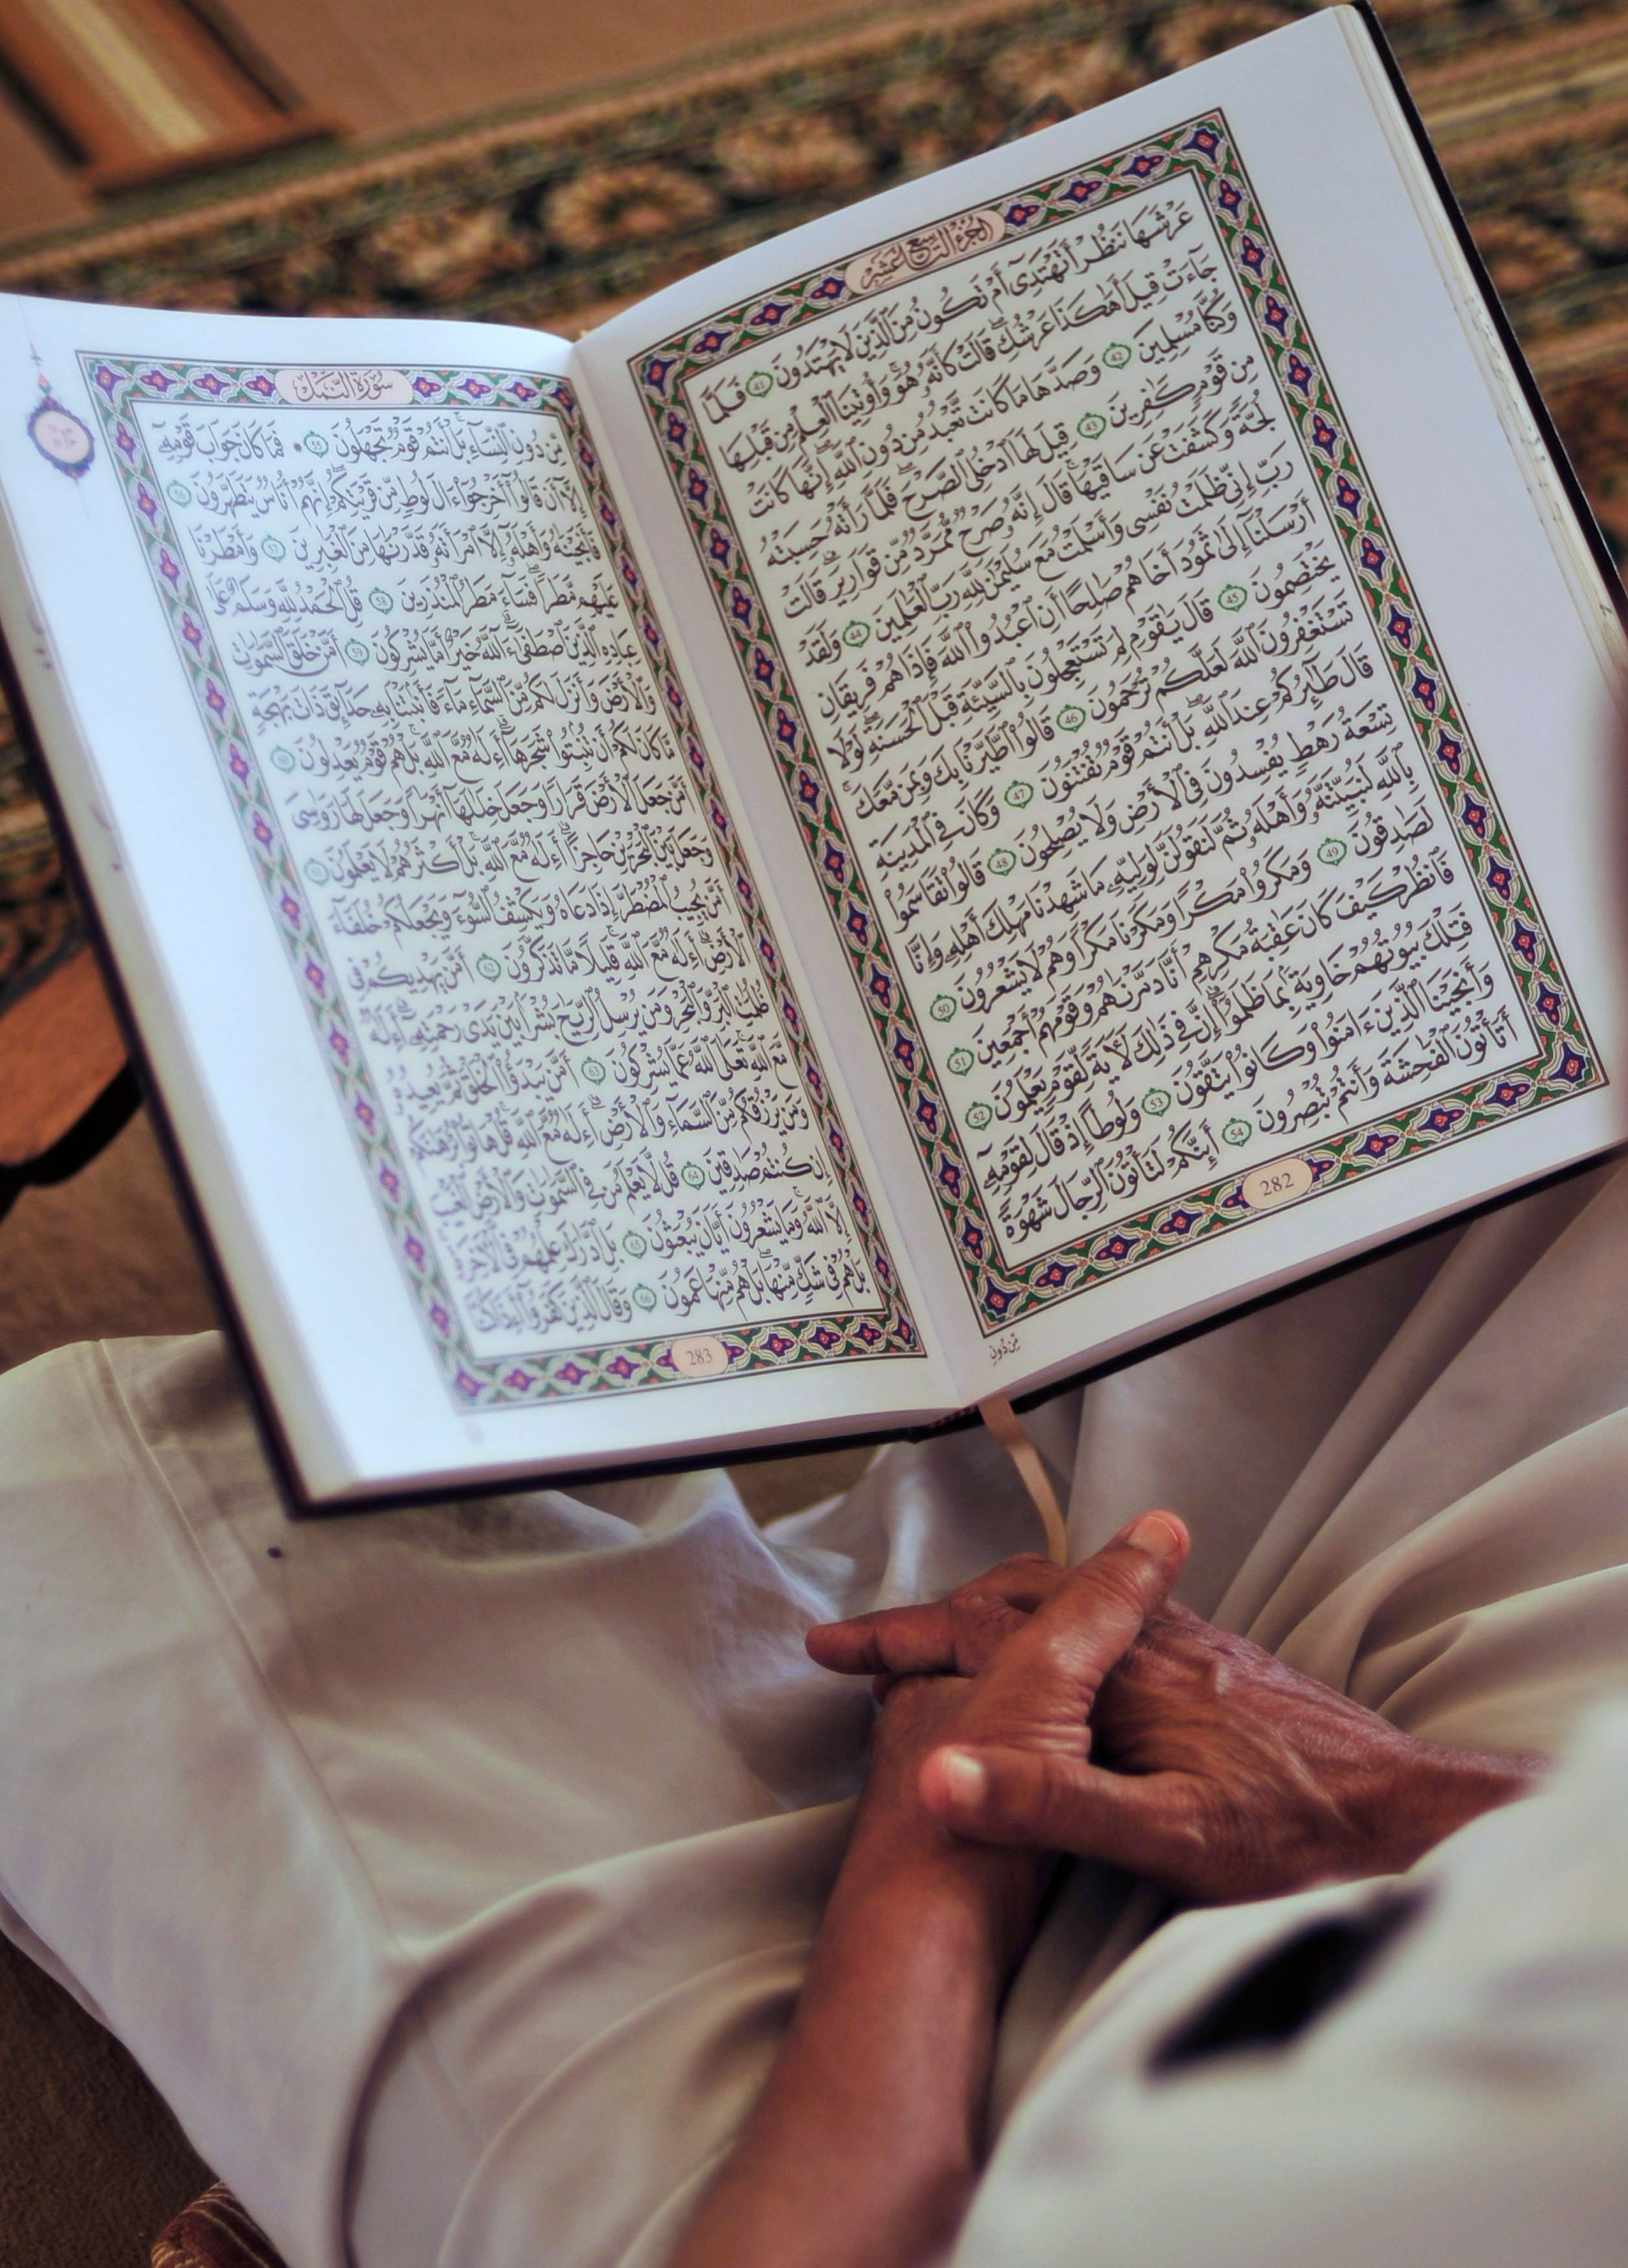 الجزء التاسع عشر
عَرْشَهَا نَنظُرْ أَتَهْتَدِىٓ أَمْ تَكُونُ مِنَ ٱلَّذِينَ لَا يَهْتَدُونَ 41 فَلَمَّا
جَآءَتْ قِيلَ أَهَٰكَذَا عَرْشُكِ ۖ قَالَتْ كَأَنَّهُۥ هُوَ ۚ وَأُوتِينَا ٱلْعِلْمَ مِن قَبْلِهَا
وَكُنَّا مُسْلِمِينَ 42 وَصَدَّهَا مَا كَانَت تَّعْبُدُ مِن دُونِ ٱللَّهِ ۖ إِنَّهَا كَانَتْ
مِن قَوْمٍ كَٰفِرِينَ 43 قِيلَ لَهَا ٱدْخُلِى ٱلصَّرْحَ ۖ فَلَمَّا رَأَتْهُ حَسِبَتْهُ
لُجَّةً وَكَشَفَتْ عَن سَاقَيْهَا ۚ قَالَ إِنَّهُۥ صَرْحٌ مُّمَرَّدٌ مِّن قَوَارِيرَ ۗ قَالَتْ
رَبِّ إِنِّى ظَلَمْتُ نَفْسِى وَأَسْلَمْتُ مَعَ سُلَيْمَٰنَ لِلَّهِ رَبِّ ٱلْعَٰلَمِينَ 44 وَلَقَدْ
أَرْسَلْنَآ إِلَىٰ ثَمُودَ أَخَاهُمْ صَٰلِحًا أَنِ ٱعْبُدُوا۟ ٱللَّهَ فَإِذَا هُمْ فَرِيقَانِ
يَخْتَصِمُونَ 45 قَالَ يَٰقَوْمِ لِمَ تَسْتَعْجِلُونَ بِٱلسَّيِّئَةِ قَبْلَ ٱلْحَسَنَةِ ۖ لَوْلَا
تَسْتَغْفِرُونَ ٱللَّهَ لَعَلَّكُمْ تُرْحَمُونَ 46 قَالُوا۟ ٱطَّيَّرْنَا بِكَ وَبِمَن مَّعَكَ ۚ
قَالَ طَٰٓئِرُكُمْ عِندَ ٱللَّهِ ۖ بَلْ أَنتُمْ قَوْمٌ تُفْتَنُونَ 47 وَكَانَ فِى ٱلْمَدِينَةِ
تِسْعَةُ رَهْطٍ يُفْسِدُونَ فِى ٱلْأَرْضِ وَلَا يُصْلِحُونَ 48 قَالُوا۟ تَقَاسَمُوا۟
بِٱللَّهِ لَنُبَيِّتَنَّهُۥ وَأَهْلَهُۥ ثُمَّ لَنَقُولَنَّ لِوَلِيِّهِۦ مَا شَهِدْنَا مَهْلِكَ أَهْلِهِۦ وَإِنَّا
لَصَٰدِقُونَ 49 وَمَكَرُوا۟ مَكْرًا وَمَكَرْنَا مَكْرًا وَهُمْ لَا يَشْعُرُونَ 50
فَٱنظُرْ كَيْفَ كَانَ عَٰقِبَةُ مَكْرِهِمْ أَنَّا دَمَّرْنَٰهُمْ وَقَوْمَهُمْ أَجْمَعِينَ 51
فَتِلْكَ بُيُوتُهُمْ خَاوِيَةًۢ بِمَا ظَلَمُوٓا۟ ۗ إِنَّ فِى ذَٰلِكَ لَءَايَةً لِّقَوْمٍ يَعْلَمُونَ 52
وَأَنجَيْنَا ٱلَّذِينَ ءَامَنُوا۟ وَكَانُوا۟ يَتَّقُونَ 53 وَلُوطًا إِذْ قَالَ لِقَوْمِهِۦٓ
أَتَأْتُونَ ٱلْفَٰحِشَةَ وَأَنتُمْ تُبْصِرُونَ 54 أَئِنَّكُمْ لَتَأْتُونَ ٱلرِّجَالَ شَهْوَةً
282
مِّن دُونِ
سورة النمل
مِّن دُونِ ٱلنِّسَآءِ ۚ بَلْ أَنتُمْ قَوْمٌ تَجْهَلُونَ 55 ۞ فَمَا كَانَ جَوَابَ قَوْمِهِۦٓ
إِلَّآ أَن قَالُوٓا۟ أَخْرِجُوٓا۟ ءَالَ لُوطٍ مِّن قَرْيَتِكُمْ ۖ إِنَّهُمْ أُنَاسٌ يَتَطَهَّرُونَ 56
فَأَنجَيْنَٰهُ وَأَهْلَهُۥٓ إِلَّا ٱمْرَأَتَهُۥ قَدَّرْنَٰهَا مِنَ ٱلْغَٰبِرِينَ 57 وَأَمْطَرْنَا
عَلَيْهِم مَّطَرًا ۖ فَسَآءَ مَطَرُ ٱلْمُنذَرِينَ 58 قُلِ ٱلْحَمْدُ لِلَّهِ وَسَلَٰمٌ عَلَىٰ
عِبَادِهِ ٱلَّذِينَ ٱصْطَفَىٰٓ ۗ ءَآللَّهُ خَيْرٌ أَمَّا يُشْرِكُونَ 59 أَمَّنْ خَلَقَ ٱلسَّمَٰوَٰتِ
وَٱلْأَرْضَ وَأَنزَلَ لَكُم مِّنَ ٱلسَّمَآءِ مَآءً فَأَنۢبَتْنَا بِهِۦ حَدَآئِقَ ذَاتَ بَهْجَةٍ
مَّا كَانَ لَكُمْ أَن تُنۢبِتُوا۟ شَجَرَهَآ ۗ أَءِلَٰهٌ مَّعَ ٱللَّهِ ۚ بَلْ هُمْ قَوْمٌ يَعْدِلُونَ 60
أَمَّن جَعَلَ ٱلْأَرْضَ قَرَارًا وَجَعَلَ خِلَٰلَهَآ أَنْهَٰرًا وَجَعَلَ لَهَا رَوَٰسِىَ
وَجَعَلَ بَيْنَ ٱلْبَحْرَيْنِ حَاجِزًا ۗ أَءِلَٰهٌ مَّعَ ٱللَّهِ ۚ بَلْ أَكْثَرُهُمْ لَا يَعْلَمُونَ 61
أَمَّن يُجِيبُ ٱلْمُضْطَرَّ إِذَا دَعَاهُ وَيَكْشِفُ ٱلسُّوٓءَ وَيَجْعَلُكُمْ خُلَفَآءَ
ٱلْأَرْضِ ۗ أَءِلَٰهٌ مَّعَ ٱللَّهِ ۚ قَلِيلًا مَّا تَذَكَّرُونَ 62 أَمَّن يَهْدِيكُمْ فِى
ظُلُمَٰتِ ٱلْبَرِّ وَٱلْبَحْرِ وَمَن يُرْسِلُ ٱلرِّيَٰحَ بُشْرًۢا بَيْنَ يَدَىْ رَحْمَتِهِۦٓ ۗ أَءِلَٰهٌ
مَّعَ ٱللَّهِ ۚ تَعَٰلَى ٱللَّهُ عَمَّا يُشْرِكُونَ 63 أَمَّن يَبْدَؤُا۟ ٱلْخَلْقَ ثُمَّ يُعِيدُهُۥ
وَمَن يَرْزُقُكُم مِّنَ ٱلسَّمَآءِ وَٱلْأَرْضِ ۗ أَءِلَٰهٌ مَّعَ ٱللَّهِ ۚ قُلْ هَاتُوا۟ بُرْهَٰنَكُمْ
إِن كُنتُمْ صَٰدِقِينَ 64 قُل لَّا يَعْلَمُ مَن فِى ٱلسَّمَٰوَٰتِ وَٱلْأَرْضِ ٱلْغَيْبَ
إِلَّا ٱللَّهُ ۚ وَمَا يَشْعُرُونَ أَيَّانَ يُبْعَثُونَ 65 بَلِ ٱدَّٰرَكَ عِلْمُهُمْ فِى ٱلْءَاخِرَةِ ۚ
بَلْ هُمْ فِى شَكٍّ مِّنْهَا ۖ بَلْ هُم مِّنْهَا عَمُونَ 66 وَقَالَ ٱلَّذِينَ كَفَرُوٓا۟ أَءِذَا كُنَّا
283